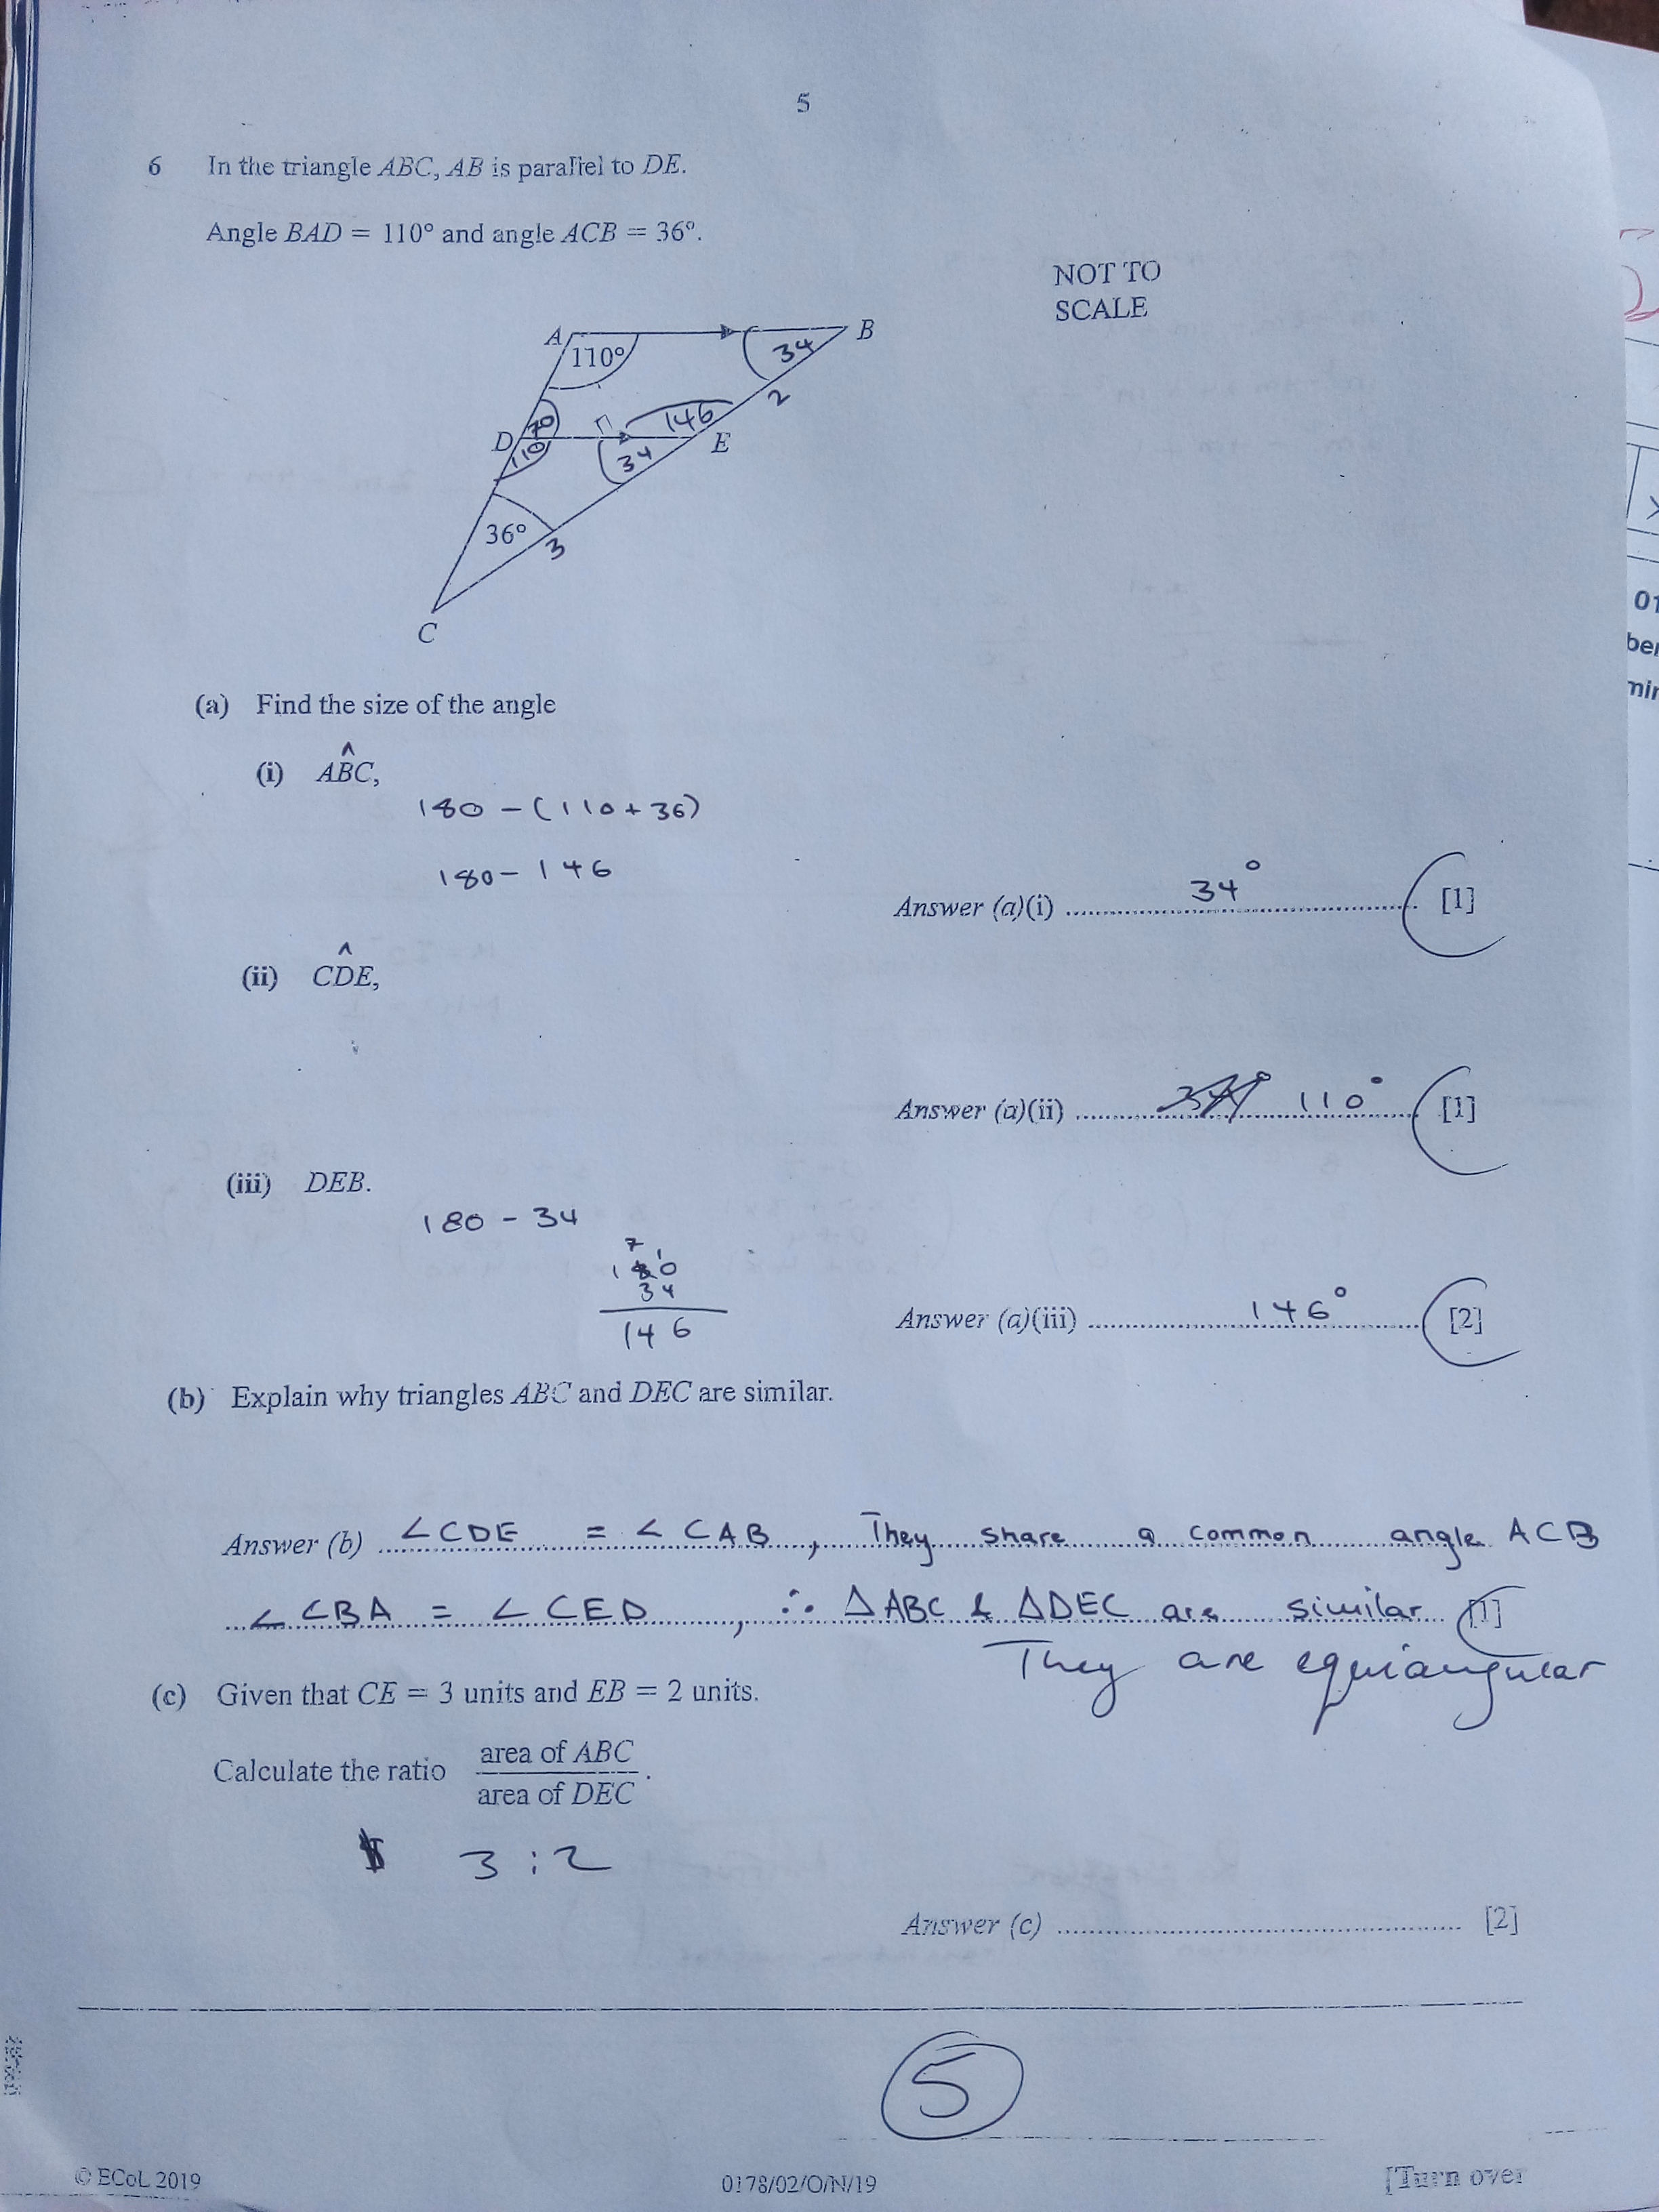 5
6 In the triangle ABC, AB is parallel to DE.
Angle BAD = 110° and angle ACB = 36°.
NOT TO
SCALE
A
B
110°
34
2
70
146
D
E
110
34
36°
3
C
(a) Find the size of the angle
(i) AB̂C,
180 - (110 + 36)
180 - 146
Answer (a)(i) 34° [1]
(ii) CD̂E,
Answer (a)(ii) 34° 110° [1]
(iii) DEB.
180 - 34
7 1
180
34
146
Answer (a)(iii) 146° [2]
(b) Explain why triangles ABC and DEC are similar.
Answer (b) ∠CDE = ∠CAB, They share a common angle ACB
∠CBA = ∠CED, ∴ ΔABC & ΔDEC are similar [1]
They are equiangular
(c) Given that CE = 3 units and EB = 2 units.
Calculate the ratio area of ABC
area of DEC .
3 : 2
Answer (c) [2]
5
© ECoL 2019
0178/02/O/N/19
[Turn over